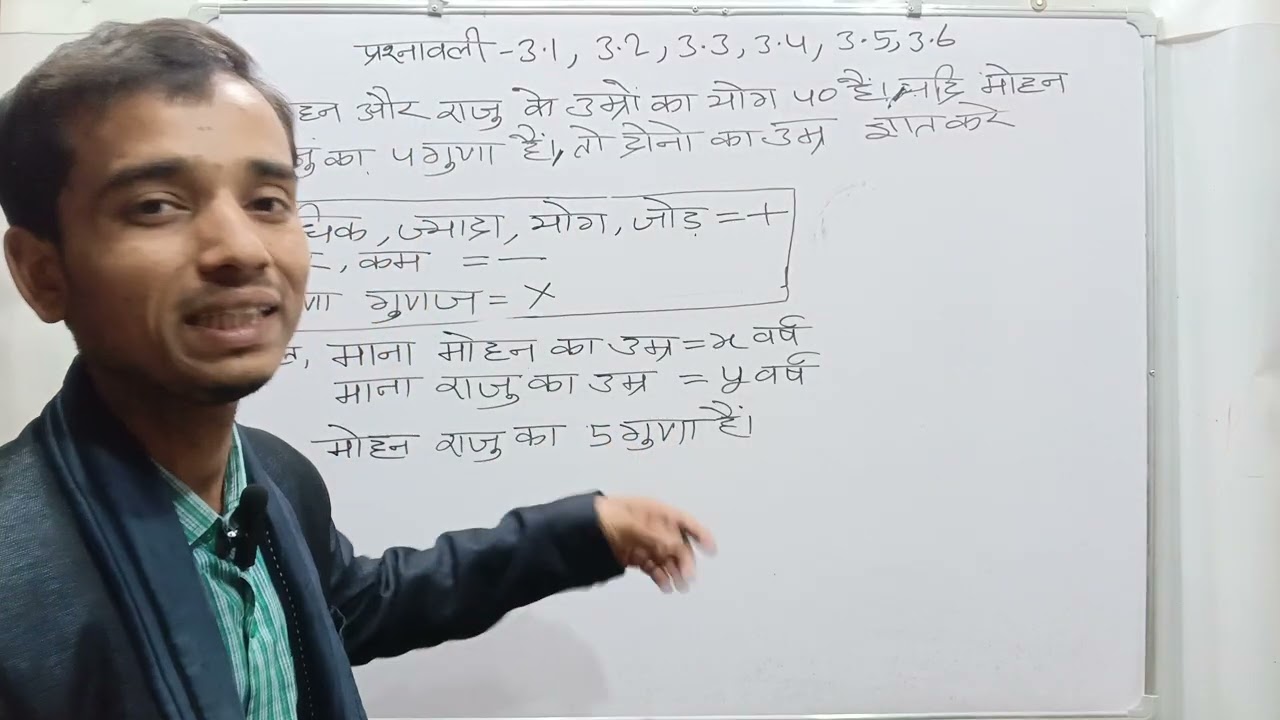 प्रश्नावली - 3.1, 3.2, 3.3, 3.4, 3.5, 3.6
हन और राजु के उम्रों का योग 40 हैं। यदि मोहन
का 4 गुणा हैं, तो दोनो का उम्र ज्ञात करे
धिक, ज्यादा, योग, जोड़ = +
, कम = —
णा गुणज = ×
, माना मोहन का उम्र = x वर्ष
माना राजु का उम्र = y वर्ष
मोहन राजु का 5 गुणा हैं।